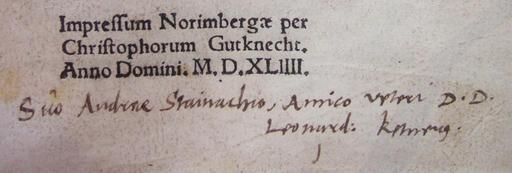 Impreſſum Norimbergæ per
Chriſtophorum Gutknecht.
Anno Domini. M. D. XLIIII.
Suo Andreae Stainachio, Amico veteri D. D.
Leonard: